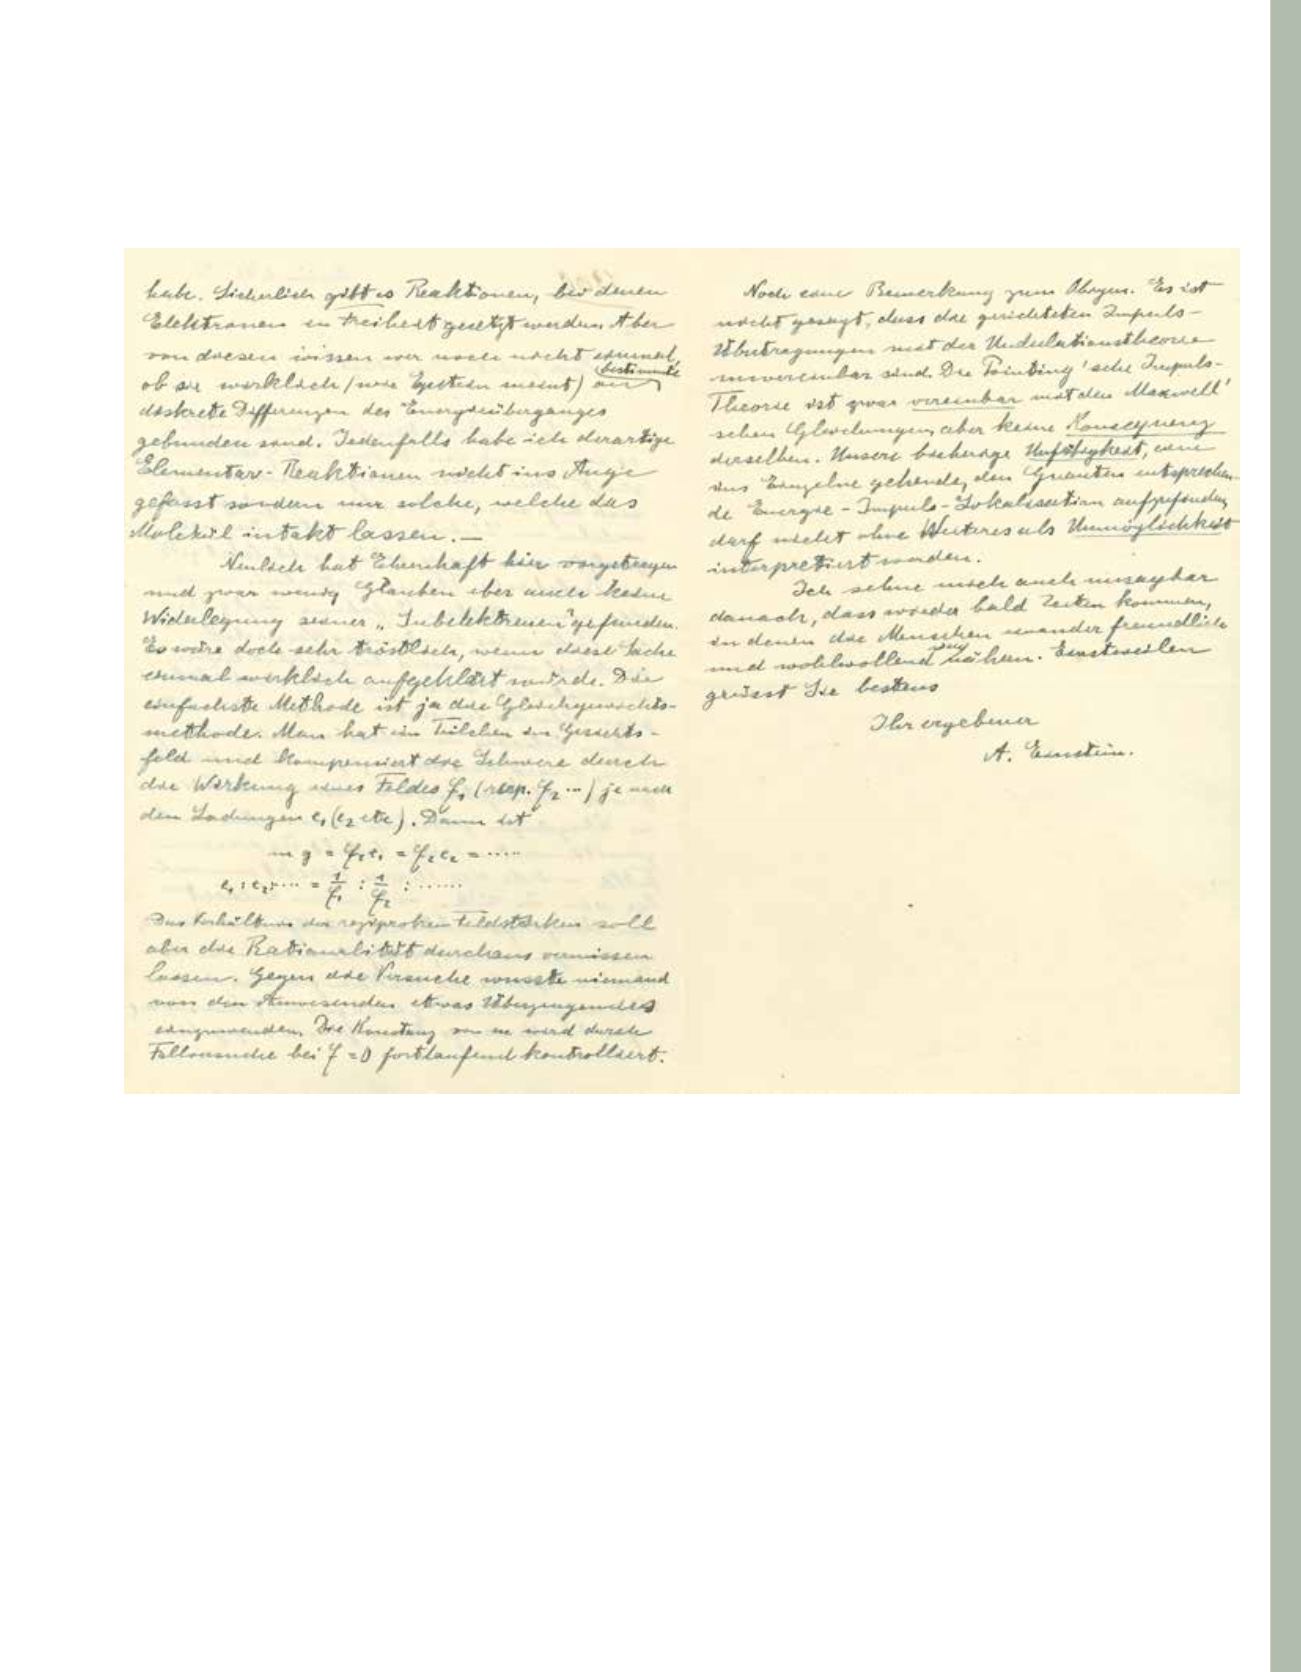 habe. Sicherlich gibt es Reaktionen, bei denen
Elektronen in Freiheit gesetzt werden. Aber
von diesen wissen wir noch nicht einmal,
ob sie wirklich (wie Epstein meint) an bestimmte
diskrete Differenzen des Energieüberganges
gebunden sind. Jedenfalls habe ich derartige
Elementar-Reaktionen nicht ins Auge
gefasst sondern nur solche, welche das
Molekül intakt lassen. —
Neulich hat Ehrenhaft hier vorgetragen
und zwar wenig Glauben aber auch keine
Widerlegung seiner „Subelektronen" gefunden.
Es wäre doch sehr tröstlich, wenn diese Sache
einmal wirklich aufgeklärt würde. Die
einfachste Methode ist ja die Gleichgewichts-
methode. Man hat ein Teilchen im
feld und kompensiert die Schwere durch
die Wirkung eines Feldes f₁ (resp. f₂ ...) je nach
den Ladungen e₁ (e₂ etc). Dann ist
m g = f₁e₁ = f₂e₂ = .....
e₁ : e₂ .... = 1/f₁ : 1/f₂ : ......
Das Verhältnis der reziproken Feldstärken soll
aber die Rationalität durchaus vermissen
lassen. Gegen die Versuche wusste niemand
von den Anwesenden etwas Überzeugendes
einzuwenden. Die Konstanz von m wird durch
Fallversuche bei f = 0 fortlaufend kontrolliert.
Noch eine Bemerkung zum Obigen. Es ist
nicht gesagt, dass die gerichteten Impuls-
Übertragungen mit der Undulationstheorie
unvereinbar sind. Die Pointing'sche Impuls-
Theorie ist zwar vereinbar mit den Maxwell'
schen Gleichungen, aber keine Konsequenz
derselben. Unsere bisherige Unfähigkeit, eine
ins Einzelne gehende, den Quanten entsprechen-
de Energie-Impuls-Lokalisation aufzufinden,
darf nicht ohne Weiteres als Unmöglichkeit
interpretiert werden.
Ich sehne mich auch unsagbar
danach, dass wieder bald Zeiten kommen,
in denen die Menschen einander freundlich
und wohlwollend nähern. Einstweilen
grüsst Sie bestens
Ihr ergebener
A. Einstein.